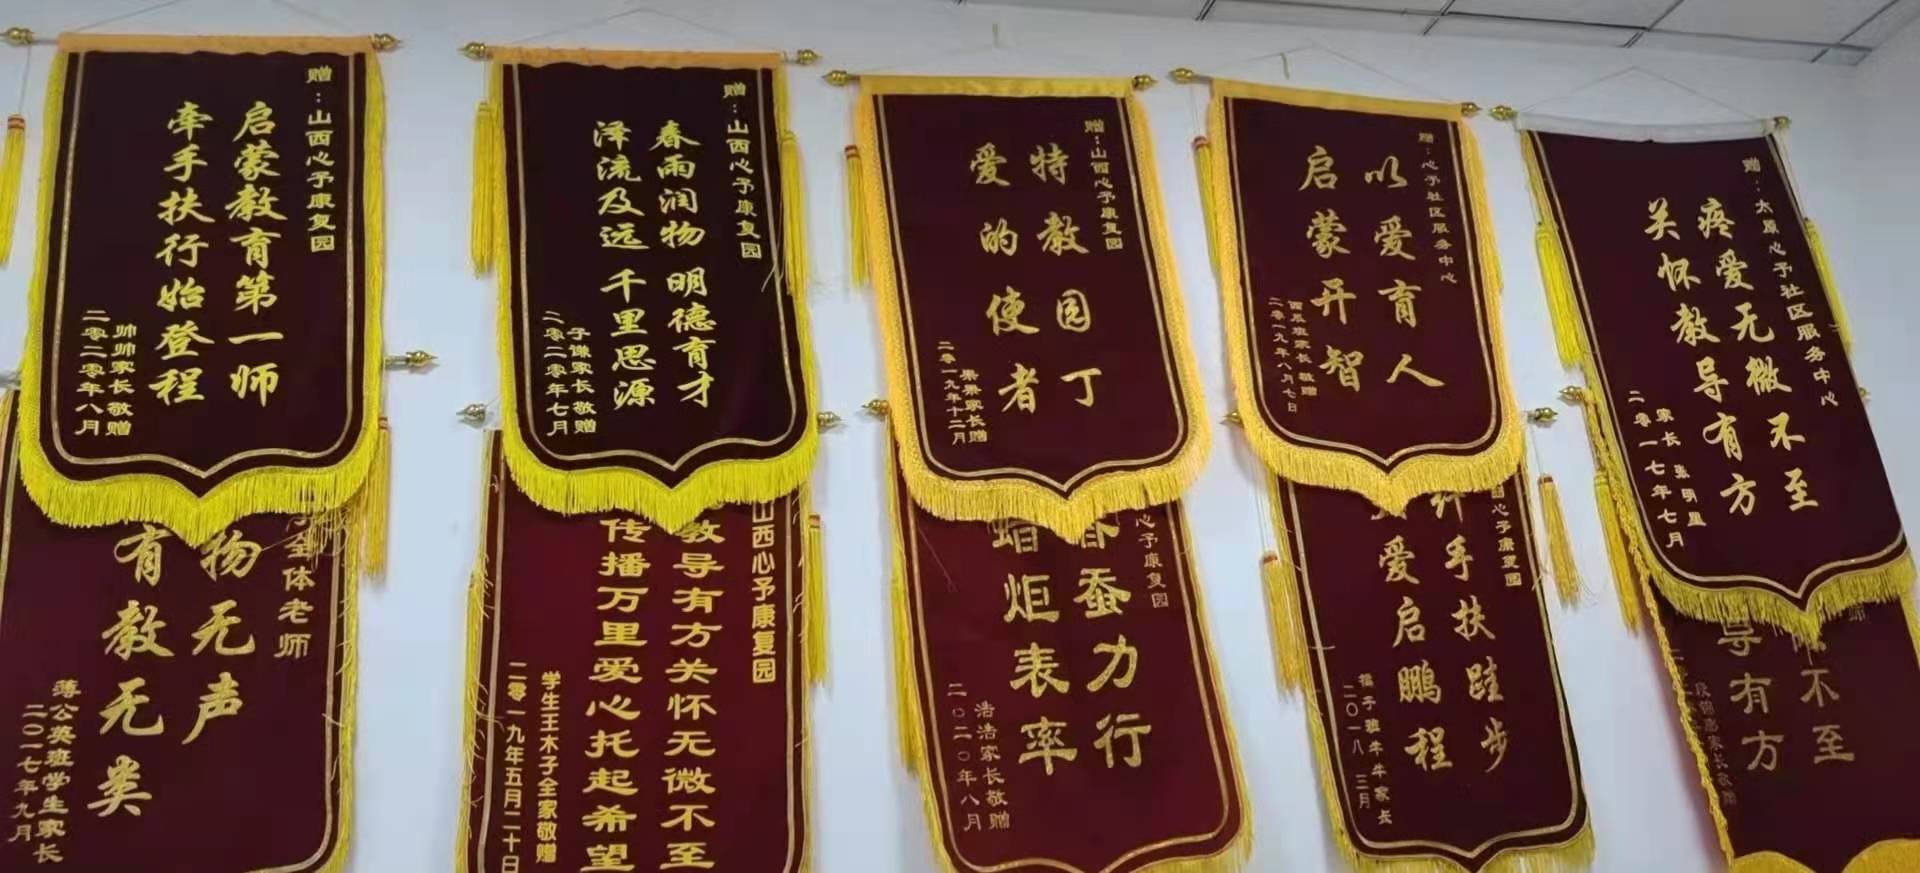 赠：山西心予康复园
启蒙教育第一师
牵手扶行始登程
帅帅家长敬赠
二零二零年八月
赠：山西心予康复园
春雨润物 明德育才
泽流及远 千里思源
子谦家长敬赠
二零二零年七月
赠：山西心予康复园
特教园丁
爱的使者
果果家长赠
二零一九年十二月
赠：心予社区服务中心
以爱育人
启蒙开智
家长敬赠
二零一九年八月七日
赠：太原心予社区服务中心
疼爱无微不至
关怀教导有方
家长
二零一七年七月
全体老师
物无声
有教无类
蒲公英班学生家长
二零一七年九月
山西心予康复园
教导有方关怀无微不至
传播万里爱心托起希望
学生王木子全家敬赠
二零一九年五月二十日
心予康复园
春蚕力行
蜡炬表率
浩浩家长敬赠
二〇二〇年八月
心予康复园
手扶跬步
爱启鹏程
牛牛家长
二〇一八 三月
不至
导有方
家长敬赠